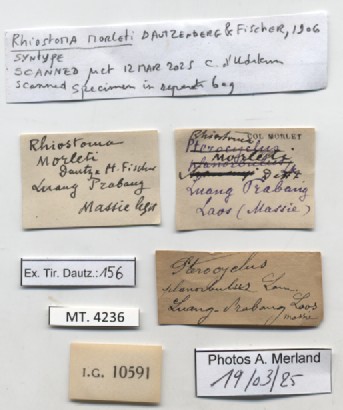 Rhiostoma morleti DAUTZENBERG & Fischer, 1906
SYNTYPE
SCANNED µct 12 MAR 2025 C. d'Udekem
Scanned specimen in separate bag
Rhiostoma
Morleti
Dautz. H. Fischer
Luang Prabang
Massie leg.
Rhiostoma COL MORLET
Pterocyclus
planorbulus
Morleti
D. & F.
Luang Prabang
Laos (Massie)
Ex. Tir. Dautz.: 156
MT. 4236
Pterocyclus
planorbulus Lam.
Luang-Prabang Laos
I.G. 10591
Photos A. Merland
19/03/25